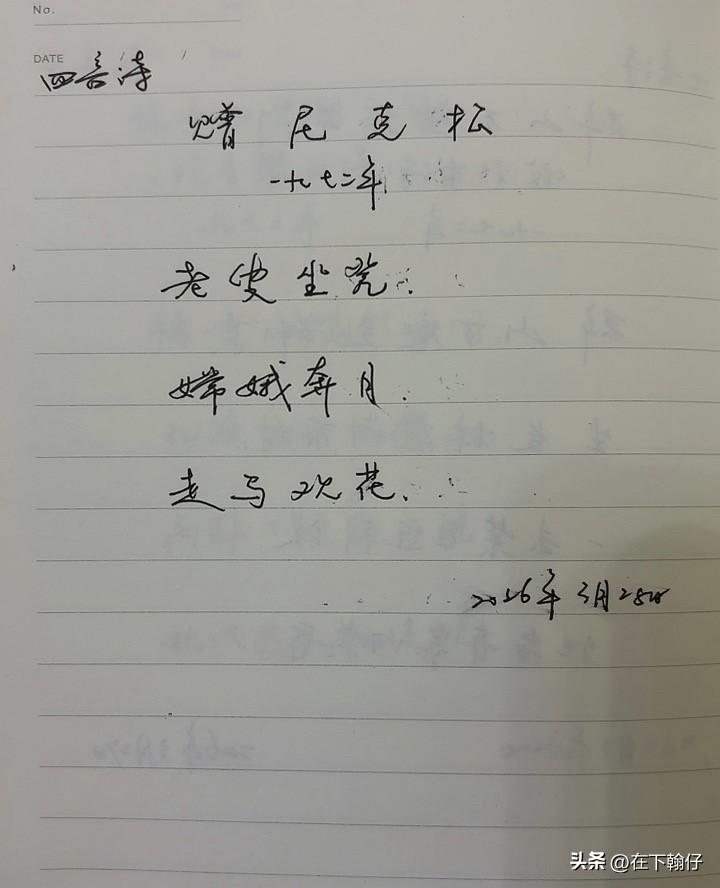 No.
DATE
四言诗
赠尼克松
一九七二年
老叟坐凳.
嫦娥奔月.
走马观花.
2026年3月28日
头条 @在下翰仔